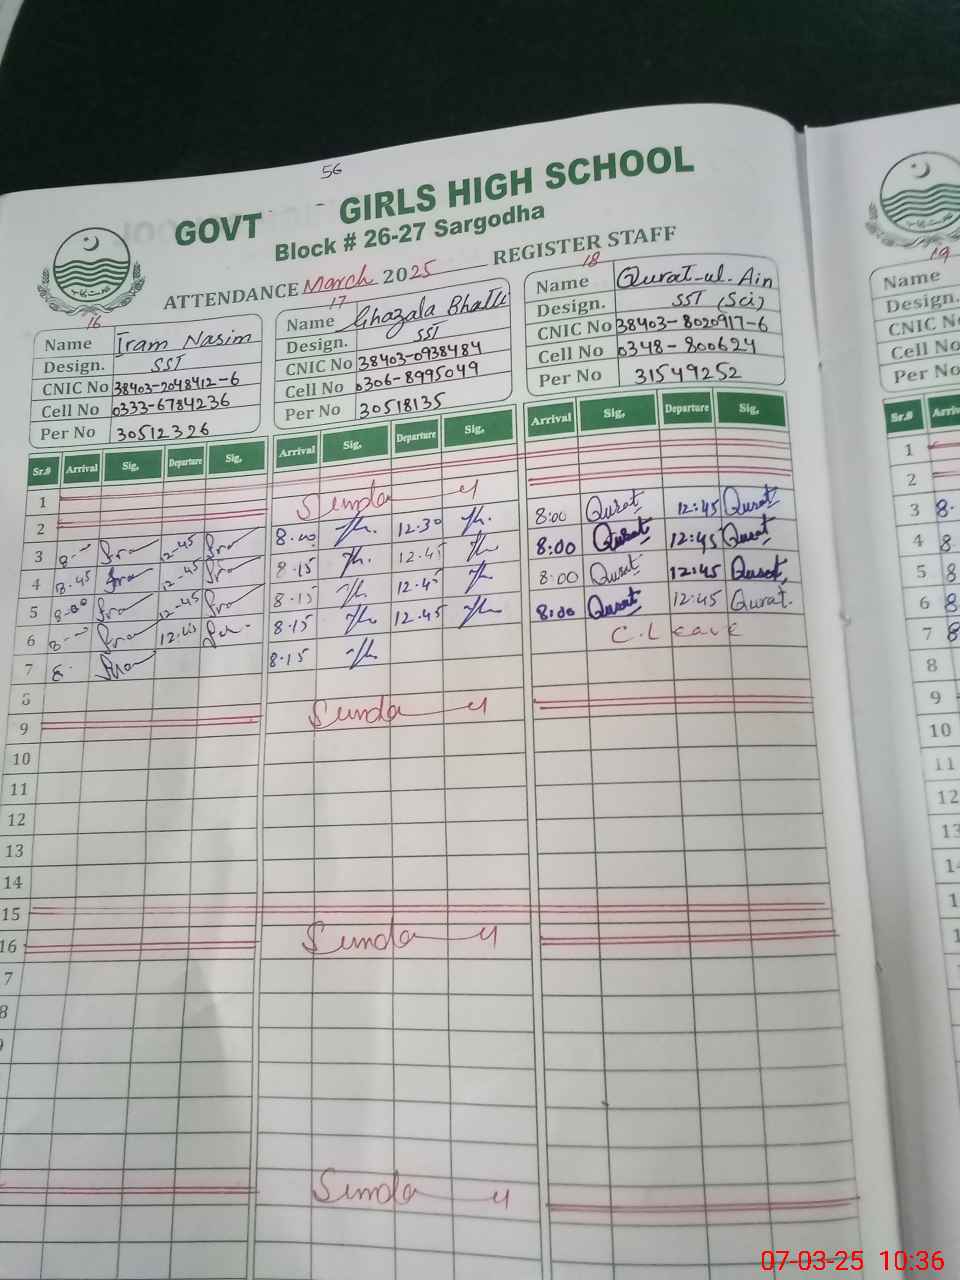 56
GOVT - GIRLS HIGH SCHOOL
Block # 26-27 Sargodha
ATTENDANCE March 2025 REGISTER STAFF
16
Name Iram Nasim
Design. SST
CNIC No 38403-2048412-6
Cell No 0333-6784236
Per No 30512326
17
Name Ghazala Bhatti
Design. SST
CNIC No 38403-0938484
Cell No 0306-8995049
Per No 30518135
18
Name Qurat-ul-Ain
Design. SST (Sci)
CNIC No 38403-8020917-6
Cell No 0348-800624
Per No 31549252
19
Name
Design.
CNIC No
Cell No
Per No
Sr.# Arrival Sig. Departure Sig. Arrival Sig. Departure Sig. Arrival Sig. Departure Sig. Sr.#
1 1
2 Sunday 2
3 12-45 8.00 12.30 8:00 Qurat 12:45 Qurat 3 8.
4 8.45 12-45 8.15 12.45 8:00 Qurat 12:45 Qurat 4 8
5 8-00 12-45 8.15 12.45 8:00 Qurat 12:45 Qurat 5 8
6 12.45 8.15 12.45 8:00 Qurat 12:45 Qurat. 6 8
7 8. 8.15 C. Leave 7 8
8 8
9 Sunday 9
10 10
11 11
12 12
13 13
14
15
16 Sunday
7
8
Sunday
07-03-25 10:36